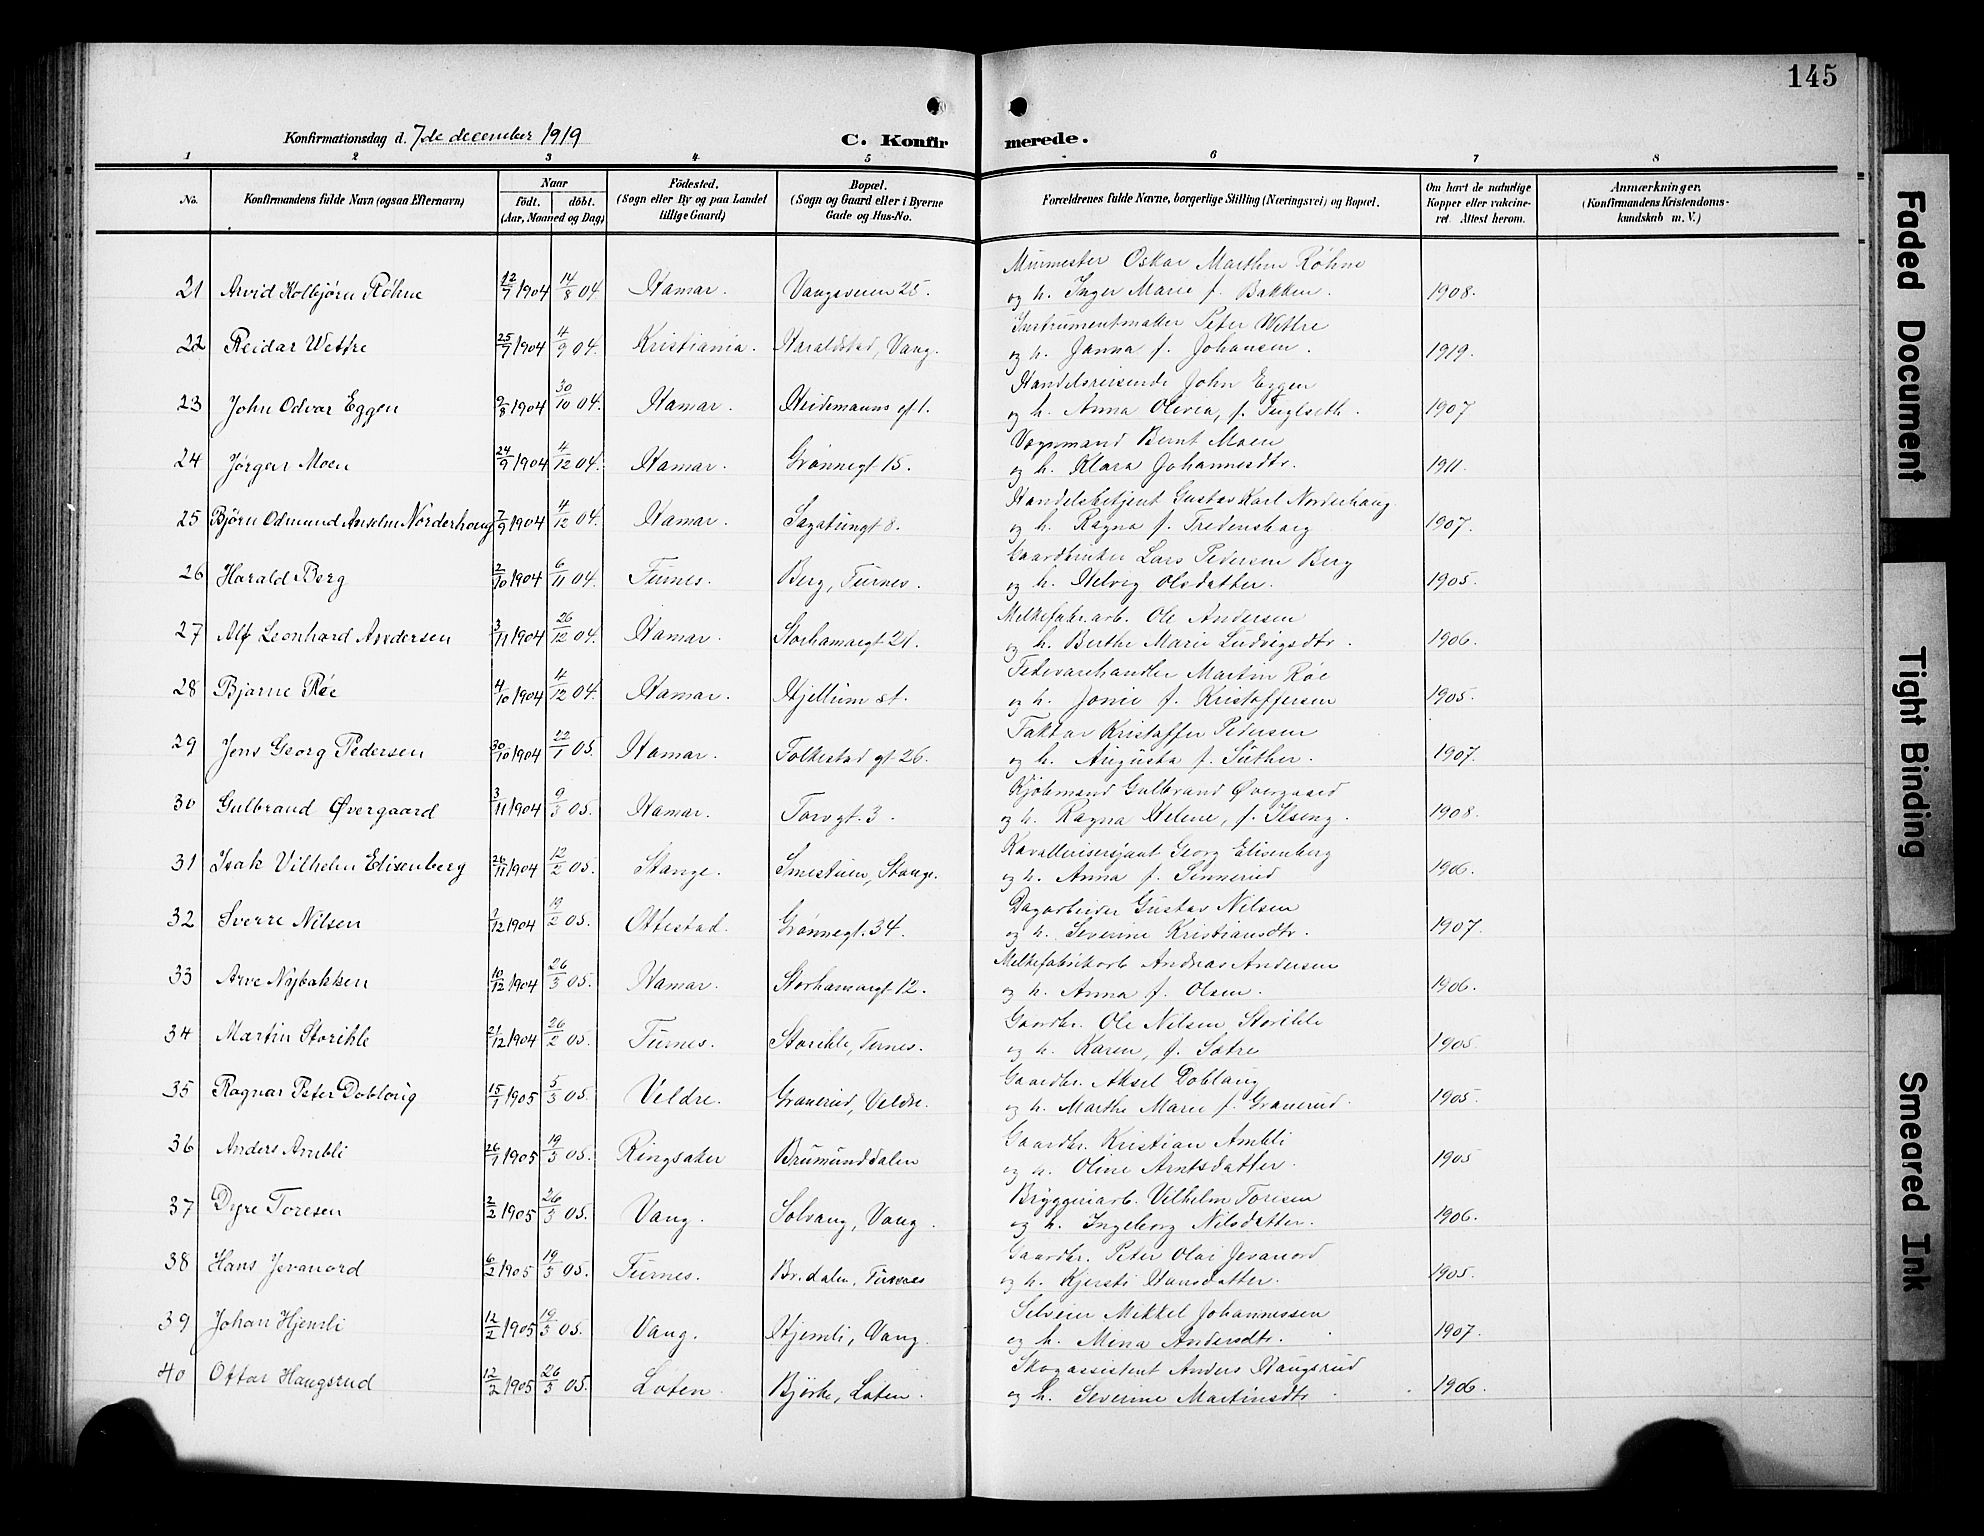 145
Konfirmationsdag d. 7de december 1919
C. Konfirmerede.
1 2 3 4 5 6 7 8
No.
Konfirmandens fulde Navn (ogsaa Efternavn)
Naar
födt. döbt.
(Aar, Maaned og Dag)
Födested.
(Sogn eller By og paa Landet
tillige Gaard)
Bopæl.
(Sogn og Gaard eller i Byerne
Gade og Hus-No.
Forældrenes fulde Navne, borgerlige Stilling (Næringsvei) og Bopæl.
Om havt de naturlige
Kopper eller vaccine-
ret. Attest herom.
Anmærkninger.
(Konfirmandens Kristendoms-
kundskab m. V.)
Murmester Oskar Marthin Röhne
21 Arvid Kolbjörn Röhne 12/7 1904 14/8 04 Hamar. Vangsveien 25. og h. Inger Marie f. Bakken. 1908.
Instrumentmaker Peter Wettre
22 Reidar Wettre 25/7 1904 4/9 04. Kristiania. Haraldstad, Vang. og h. Janna f. Johansen. 1919.
Handelsreisende John Eggen
23 John Odvar Eggen 9/8 1904 30/10 04. Hamar. Heidemanns gt. og h. Anna Olivia, f. 1907
Vognmand Bernt Moen
24 Jörgen Moen 24/9 1904 4/12 04. Hamar. Grönnegt 15. og h. Klara Johannesdtr. 1911.
Handelsbetjent Gustav Karl Norderhaug
25 Björn Odmund Anselm Norderhaug 7/9 1904 4/12 04. Hamar. Sagatungt 8. og h. Ragna f. Fredensborg 1907.
Gaardbruker Lars Pedersen Berg
26 Harald Berg 2/10 1904 6/11 04. Furnes. Berg, Furnes. og h. Helvig Olsdatter. 1905.
Melkefabr.arb. Ole Andersen
27 Alf Leonhard Andersen 3/11 1904 26/12 04. Hamar. Storhamargt 21. og h. Berthe Marie Ludvigsdtr. 1906.
Fedevarehandler Martin Röe
28 Bjarne Röe 4/10 1904 4/12 04. Hamar. Hjellum st. og h. Jonie f. Kristoffersen 1905.
Faktor Kristoffer Pedersen
29 Jens Georg Pedersen 30/10 1904 22/1 05. Hamar. Folkestad gt 26. og h. Augusta f. Suther. 1907.
Kjöbmand Gulbrand Övergaard
30 Gulbrand Øvergaard 3/11 1904 9/3 05. Hamar. Torvgt. 3. og h. Ragna Helene, f. Ilseng. 1908.
Kavallerisersjant Georg Elisenberg
31 Isak Vilhelm Elisenberg 26/11 1904 12/2 05. Stange. Smestuen, Stange. og h. Anna f. Sinnerud 1906.
Dagarbeider Gustav Nilsen
32 Sverre Nilsen 1/12 1904 19/2 05. Ottestad. Grönnegt. 34. og h. Severine Kristiansdtr. 1907.
Melkefabrikarb Andreas Andersen
33 Arve Nybakken 10/12 1904 26/3 05. Hamar. Storhamargt 12. og h. Anna f. Olsen. 1906.
Gaardbr. Ole Nilsen Storihle
34 Martin Storihle 21/12 1904 26/2 05. Furnes. Storihle, Furnes. og h. Karen, f. Sætre 1905.
Gaardbr. Aksel Doblaug
35 Ragnar Peter Dobloug 15/1 1905 5/3 05. Veldre. Granerud, Veldre. og h. Marthe Marie f. Granerud. 1905.
Gaardbr. Kristian Ambli
36 Anders Ambli 26/1 1905 19/3 05. Ringsaker Brumunddalen og h. Oline Arntsdatter. 1905
Bryggeriarb. Vilhelm Toresen
37 Dyre Toresen 2/2 1905 26/3 05. Vang. Solvang, Vang. og h. Ingeborg Nilsdatter. 1906.
Gaardbr. Peter Olai Jevanord
38 Hans Jevanord 6/2 1905 19/3 05. Furnes. Br.dalen, Furnes og h. Kjersti Hansdatter. 1905.
Selveier Mikkel Johannessen
39 Johan Hjemli 12/2 1905 19/3 05. Vang. Hjemli, Vang. og h. Mina Andersdtr. 1907.
Skogassistent Anders Haugsrud
40 Ottar Haugsrud 12/2 1905 26/3 05. Löten. Björke, Löten. og h. Severine Martinsdtr 1906.
Faded Document
Tight Binding
Smeared Ink